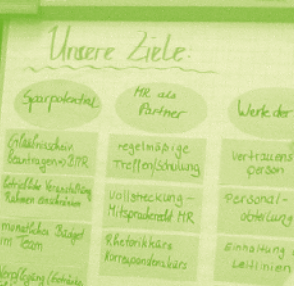 Unsere Ziele:
Sparpotential
Erlaubnisschein
beantragen => 2MR
betriebliche Veranstaltung
Rahmen einschränken
monatliches Budget
im Team
Verpflegung (Getränke
HR als
Partner
regelmäßige
Treffen/Schulung
Vollstreckung -
Mitspracherecht HR
Rhetorikkurs
Korrespondenzkurs
Werte der
Vertrauens
person
Personal-
abteilung
Einhaltung
Leitlinien